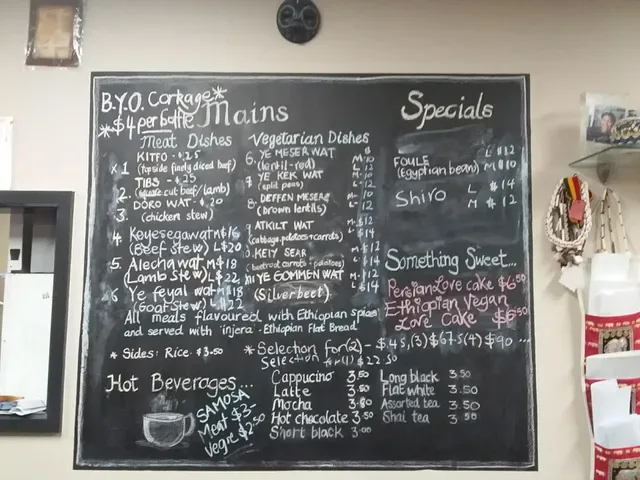 B.Y.O. Corkage*
*$4 per bottle
Mains
Meat Dishes
KITFO - $25
1 (topside finely diced beef)
TIBS - $25
2. (square cut beef/lamb)
DORO WAT - $20
3. (chicken stew)
4. Keyesegawat M$16
(Beef Stew) L$20
5. Alecha wat M$18
(Lamb Stew) L$22
6 Ye feyal wat M$18
(Goat Stew) L$22
Vegetarian Dishes
6. YE MESER WAT
(lentil-red)
YE KEK WAT
(split peas)
8. DEFFEN MESER
(brown lentils)
ATKILT WAT
(cabbage, potatoes + carrots)
KEIY SEAR
(beetroot carrots + potatoes)
YE GOMMEN WAT
(Silverbeet)
All meals flavoured with Ethiopian Spices
and served with 'injera' - Ethiopian Flat Bread
* Sides: Rice $3.50
*Selection for (2) - $45, (3) $67.5 (4) $90 ...
Selection for (1) $22.50
Specials
FOULE L $12
(Egyptian bean) M $10
Shiro L $14
M $12
Something Sweet...
Persian Love cake $6.50
Ethiopian Vegan
Love Cake $6.50
Hot Beverages...
SAMOSA
Meat $3-
Vegie $2.50
Cappucino 3.50
Latte 3.50
Mocha 3.80
Hot chocolate 3.50
Short black 3.00
Long black 3.50
Flat white 3.50
Assorted tea 3.50
Shai tea 3.50